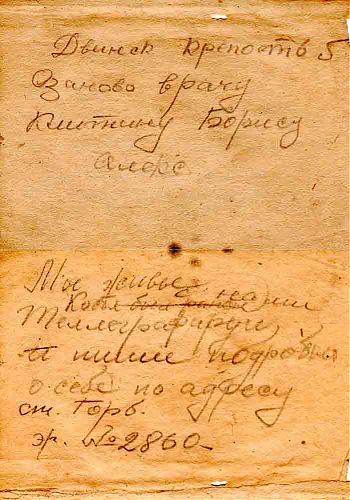 Двинск крепость 5
Заново врачу
Клитину Борису
Алекс
Мы живы с нами
Костя
Телеграфируй
и пиши подробно
о себе по адресу
ст. Горь.
эр. № 2860-